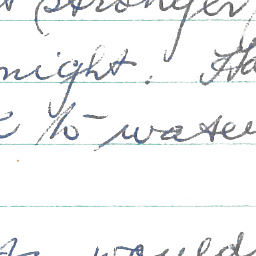 (stronger)
night. Ha
to water
would